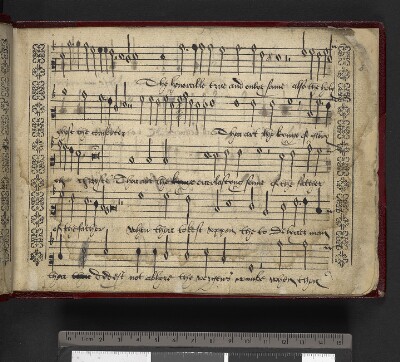 The honorable true and onlye sonne also the holy
gost the comforter Thou art the kynge of glory
Thou art the everlastyng sonne of the father
of the father when thou tokest uppon the to delyver man
thou dydest not abhore the virgens wombe when thou